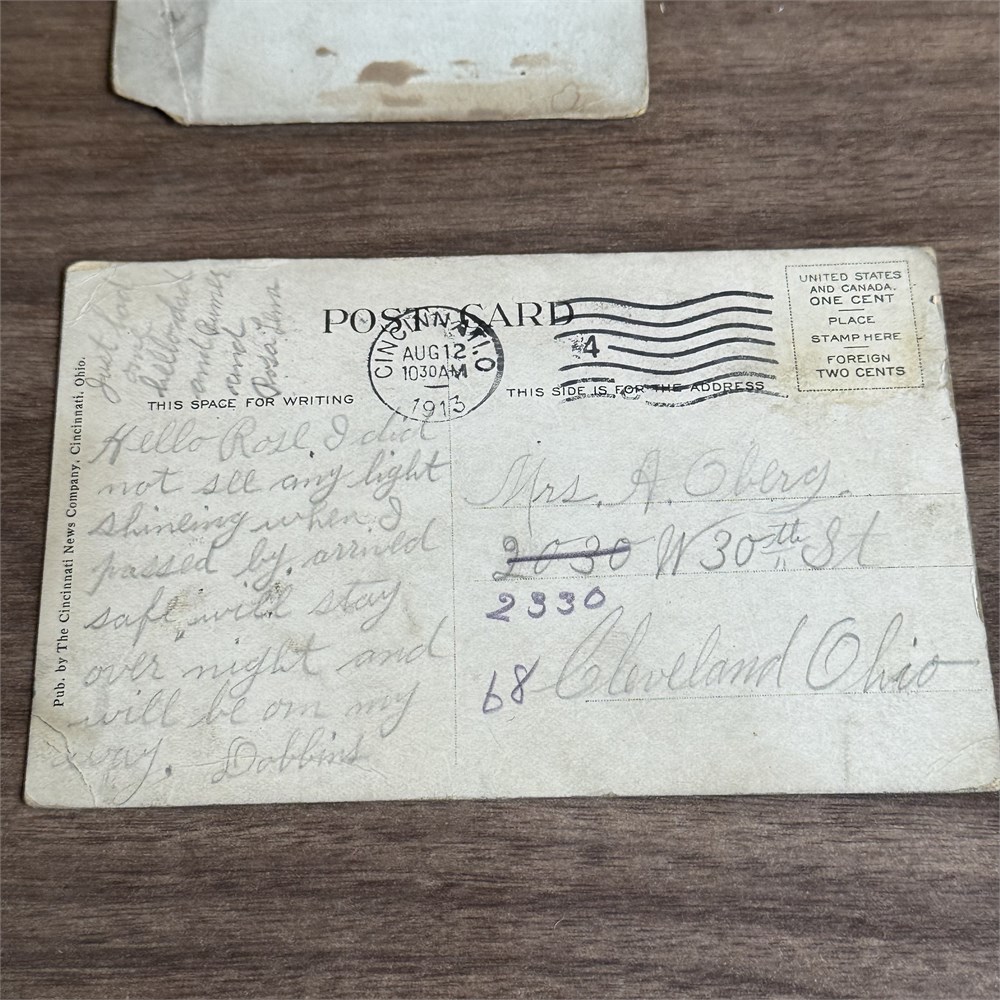 POST CARD
CINCINNATI, O.
AUG 12
1030 AM
1913
4
UNITED STATES
AND CANADA.
ONE CENT
PLACE
STAMP HERE
FOREIGN
TWO CENTS
THIS SPACE FOR WRITING
THIS SIDE IS FOR THE ADDRESS
Pub. by The Cincinnati News Company, Cincinnati, Ohio.
Just had
and
Hello Rose I did
not see any light
shineing when I
passed by. arrived
safe will stay
over night and
will be om my
way. Dobbins
Mrs. A. Oberg.
2030 W 30th St
2330
68 Cleveland Ohio